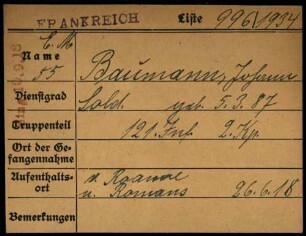 FRANKREICH Liste 996/1934
E. M.
Name
55 Baumann, Johann
Dienstgrad Sold. geb. 5.3.87
Truppenteil 121. Inf. 2. Kp.
Ort der Gefangennahme
Aufenthaltsort v. Roanne
n. Romans 26.6.18
Bemerkungen